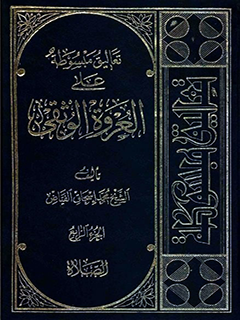 تعاليق مبسوطة
على
العروة الوثقى
تأليف
الشيخ محمد إسحاق الفياض
الجزء الرابع
الصلاة